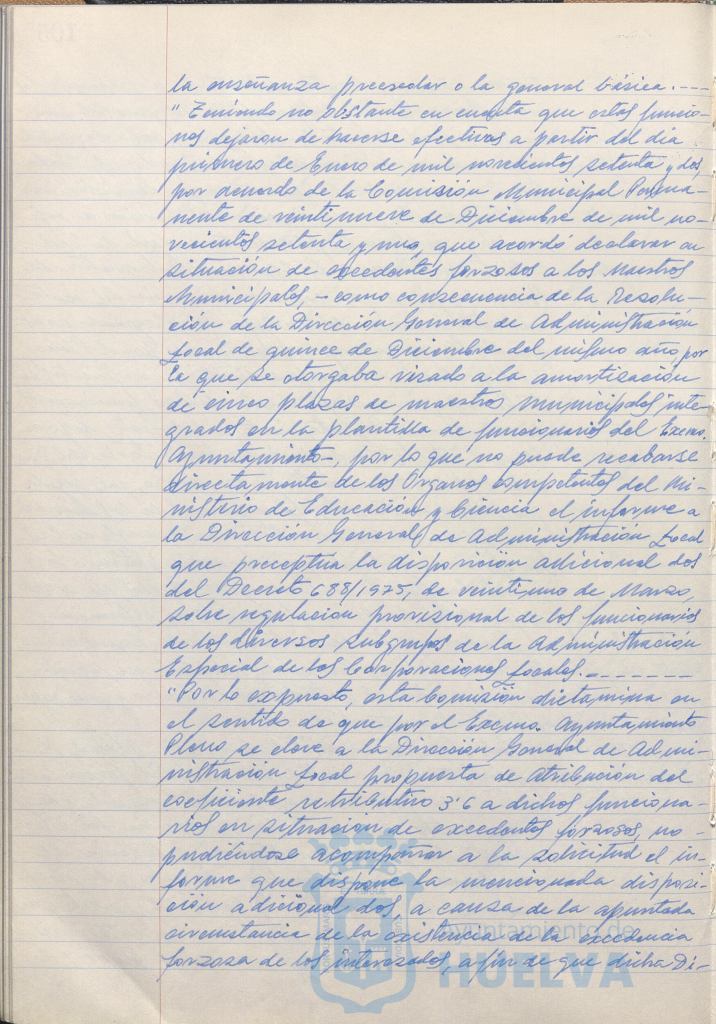 la enseñanza preescolar o la general básica.----
"Teniendo no obstante en cuenta que estas funcio-
nes dejaron de hacerse efectivas a partir del día
primero de Enero de mil novecientos setenta y dos
por acuerdo de la Comisión Municipal Perma-
nente de veintinueve de Diciembre de mil no-
vecientos setenta y uno, que acordó declarar en
situación de excedentes forzosos a los Maestros
Municipales, -como consecuencia de la Resolu-
ción de la Dirección General de Administración
Local de quince de Diciembre del mismo año, por
la que se otorgaba visado a la amortización
de cinco plazas de maestros municipales inte-
grados en la plantilla de funcionarios del Excmo.
Ayuntamiento-, por lo que no puede recabarse
directamente de los Organos competentes del Mi-
nisterio de Educación y Ciencia el informe a
la Dirección General de Administración Local
que preceptua la disposición adicional dos
del Decreto 688/1975, de veintiuno de Marzo,
sobre regulación provisional de los funcionarios
de los diversos subgrupos de la Administración
Especial de las Corporaciones Locales.-------
"Por lo expuesto, esta Comisión dictamina en
el sentido de que por el Excmo. Ayuntamiento
Pleno se eleve a la Dirección General de Admi-
nistración Local propuesta de atribución del
coeficiente retributivo 3'6 a dichos funciona-
rios en situación de excedentes forzosos, no
pudiéndose acompañar a la solicitud el in-
forme que dispone la mencionada disposi-
ción adicional dos, a causa de la apuntada
circunstancia de la existencia de la excedencia
forzosa de los interesados, a fin de que dicha Di-
Ayuntamiento de
HUELVA